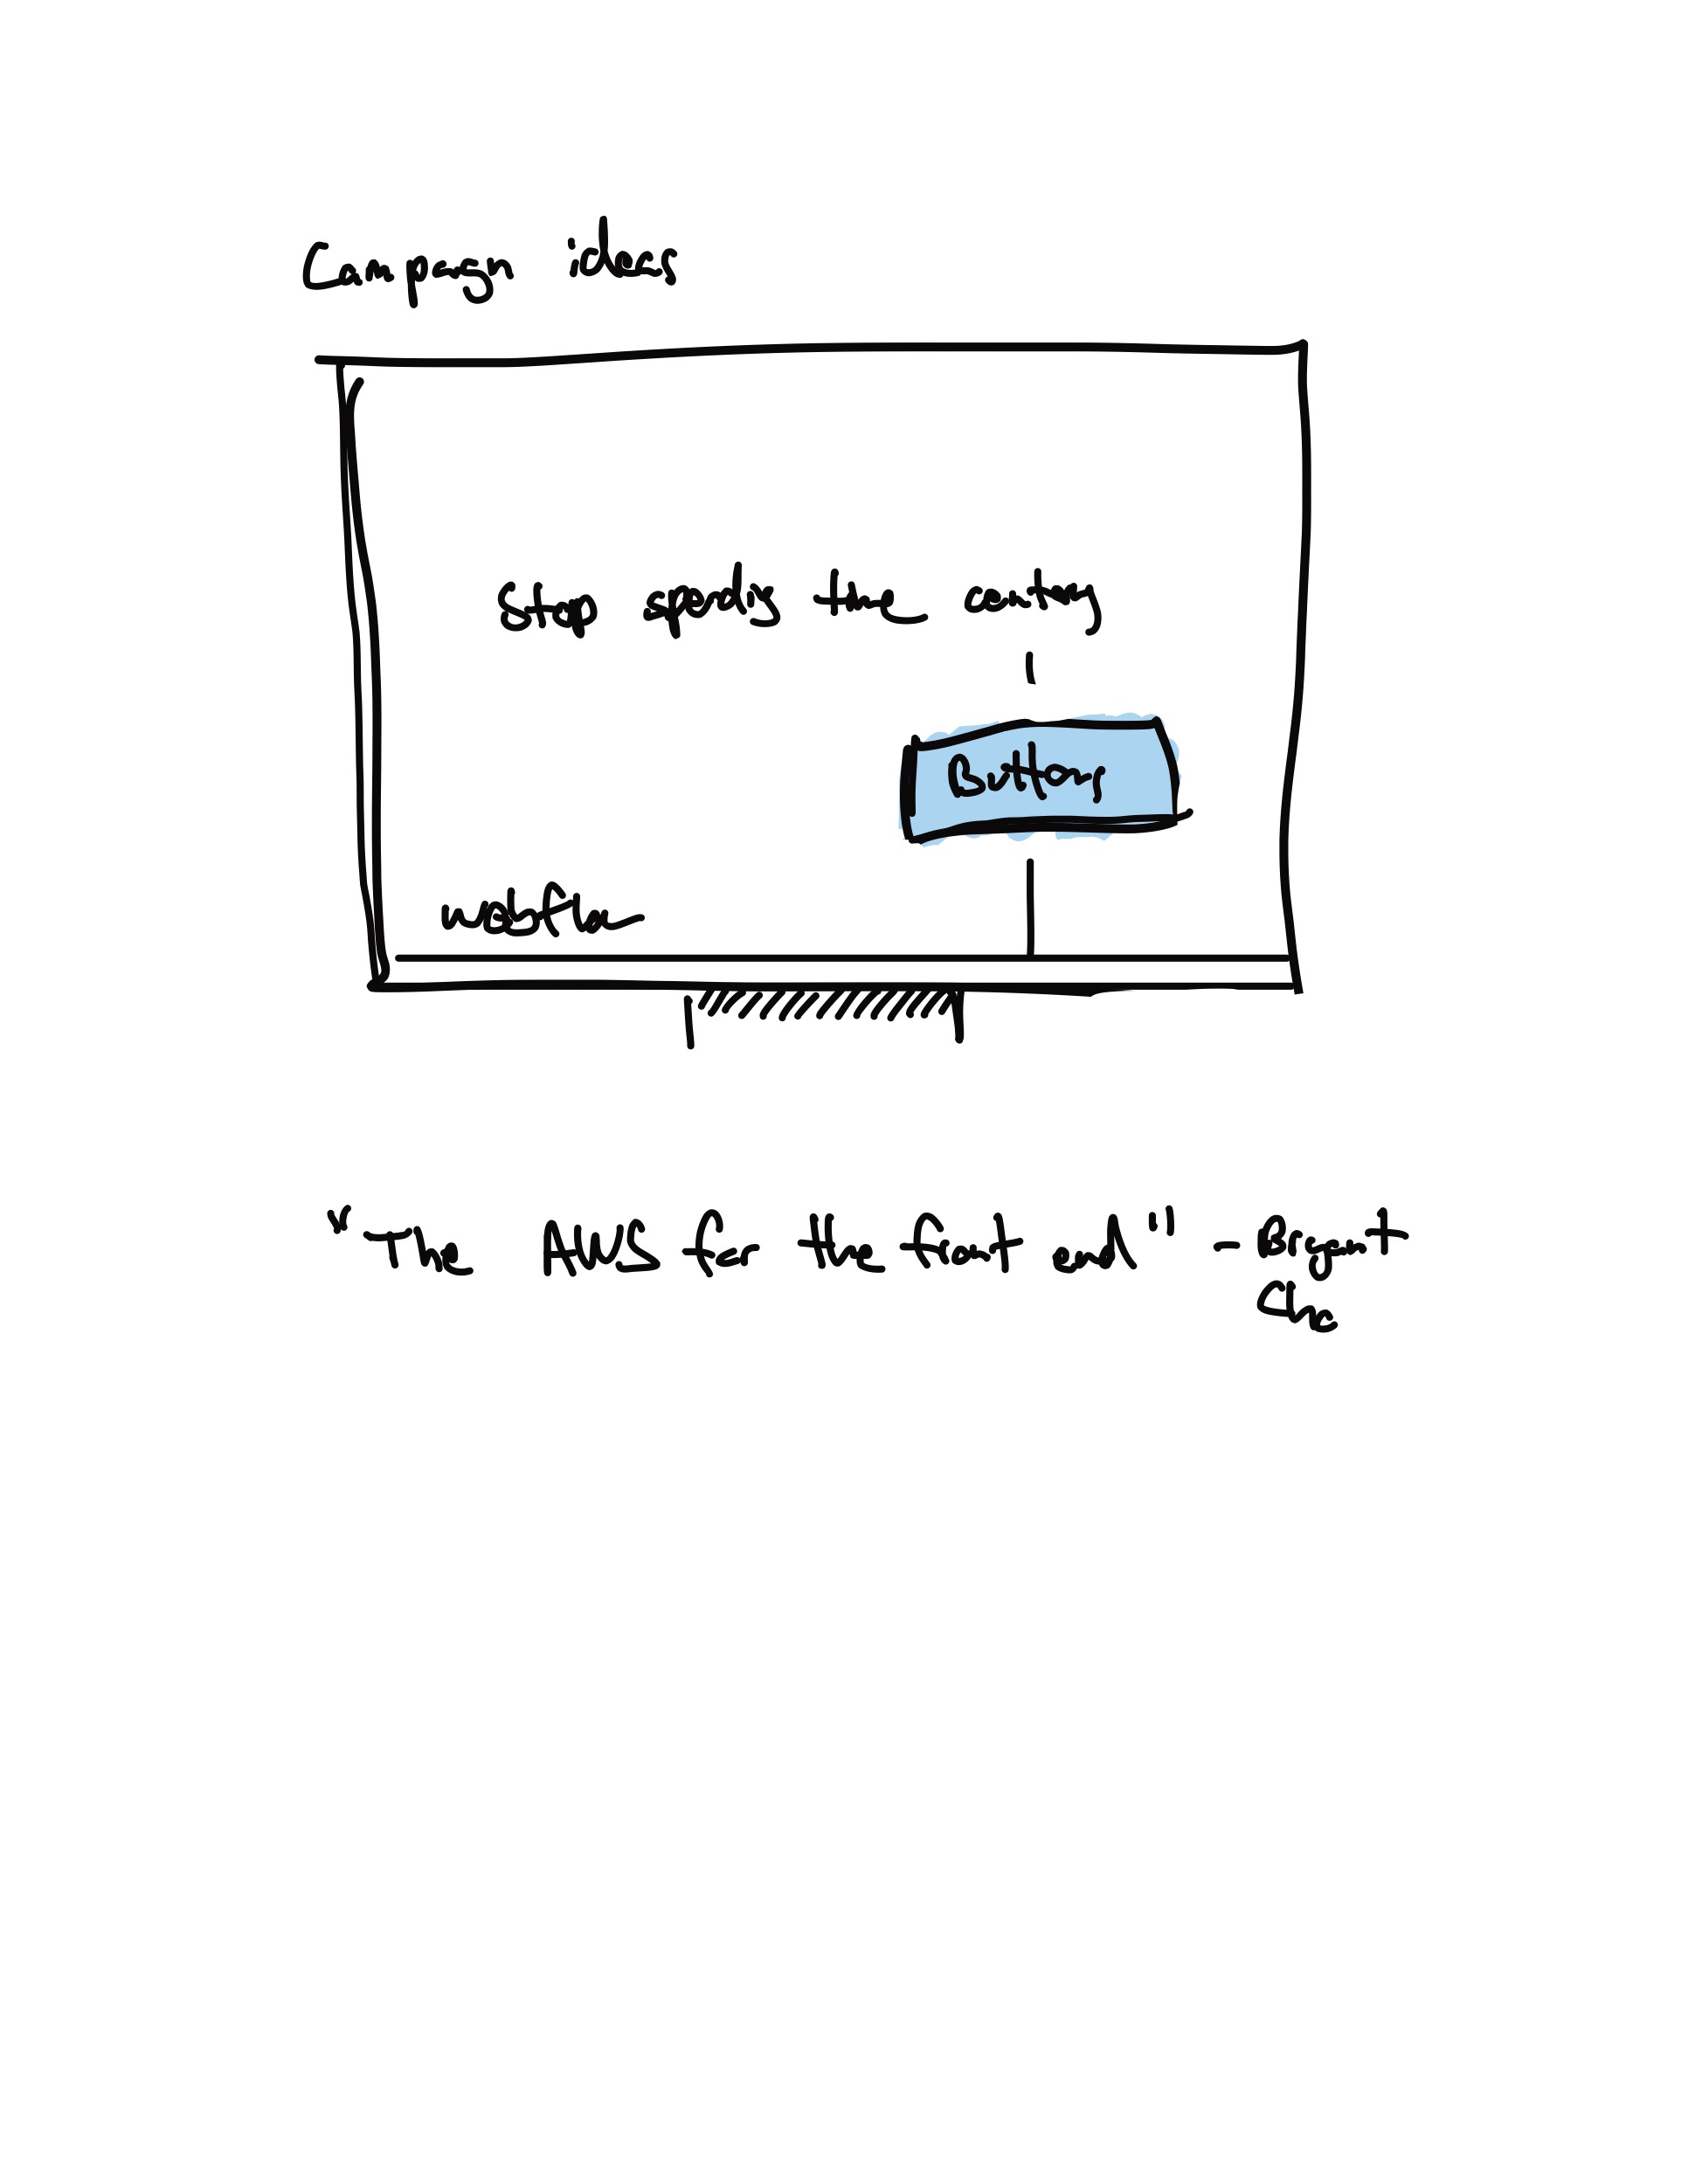 Campaign ideas
Stop spending time centering
Buttons
webflow
"The AWS for the front end" - Bryant
Chou